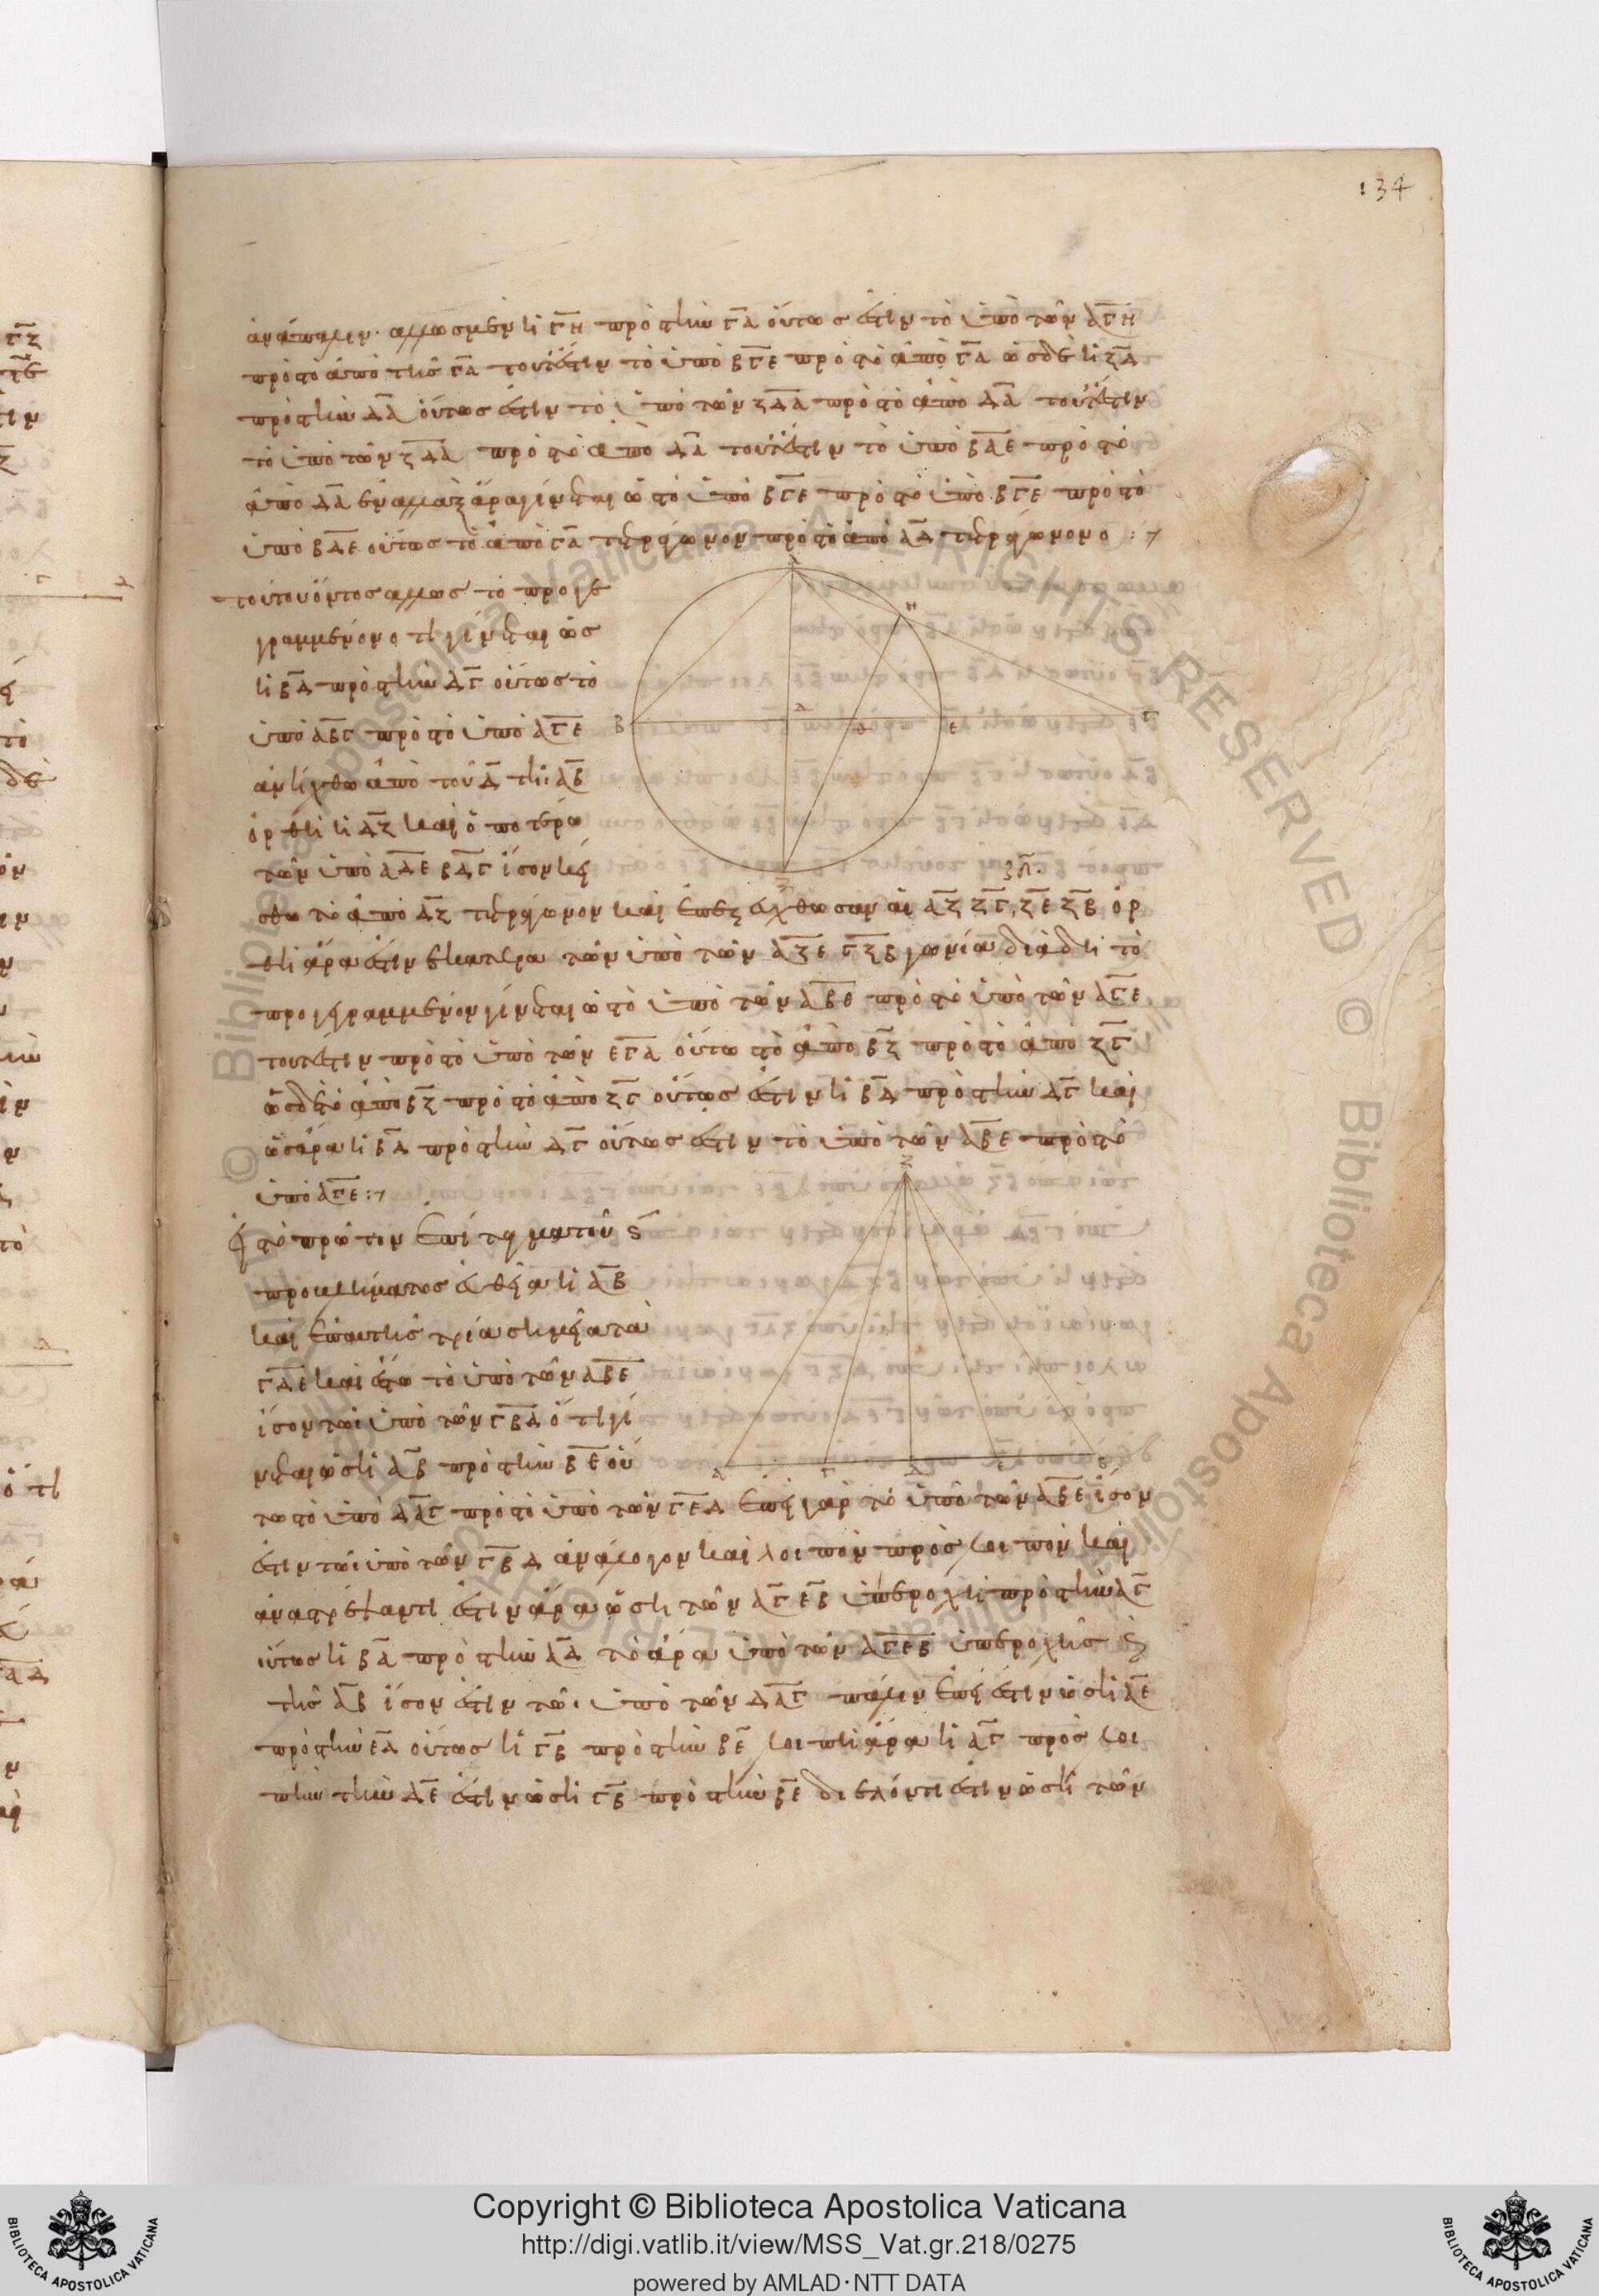 134
ἀνάπαλιν. ἀλλ' ὡς μὲν ἡ ΓΗ πρὸς τὴν ΓΑ οὕτως ἐστὶν τὸ ὑπὸ τῶν ΑΓΗ
πρὸς τὸ ἀπὸ τῆς ΓΑ τουτέστιν τὸ ὑπὸ ΒΓΕ πρὸς τὸ ἀπὸ ΓΑ ὡς δὲ ἡ ΖΔ
πρὸς τὴν ΔΑ οὕτως ἐστὶν τὸ ὑπὸ τῶν ΖΔΑ πρὸς τὸ ἀπὸ ΔΑ τουτέστιν
τὸ ὑπὸ τῶν ΖΔΑ πρὸς τὸ ἀπὸ ΔΑ τουτέστιν τὸ ὑπὸ ΒΔΕ πρὸς τὸ
ἀπὸ ΔΑ ἐναλλὰξ ἄρα γίνεται ὡς τὸ ὑπὸ ΒΓΕ πρὸς τὸ ὑπὸ ΒΓΕ πρὸς τὸ
ὑπὸ ΒΔΕ οὕτως τὸ ἀπὸ ΓΑ τετράγωνον πρὸς τὸ ἀπὸ ΑΔ τετράγωνον
τούτου ὄντος ἄλλως τὸ προγε
γραμμένον ὅτι γίνεται ὡς
ἡ ΒΔ πρὸς τὴν ΔΓ οὕτως τὸ
ὑπὸ ΑΒΓ πρὸς τὸ ὑπὸ ΑΓΕ
ἀνήχθω ἀπὸ τοῦ Δ τῇ ΑΒ
ὀρθὴ ἡ ΔΖ καὶ ὁποτέρῳ
τῶν ὑπὸ ΑΔΕ ΒΔΓ ἴσον κεί
σθω τὸ ἀπὸ ΔΖ τετράγωνον καὶ ἐπεζεύχθωσαν αἱ ΑΖ ΖΓ ΖΕ ΖΒ ὀρ
θὴ ἄρα ἐστὶν ἑκατέρα τῶν ὑπὸ τῶν ΑΖΕ ΓΖΒ γωνία διὰ δὴ τὸ
προγεγραμμένον γίνεται ὡς τὸ ὑπὸ τῶν ΑΒΕ πρὸς τὸ ὑπὸ τῶν ΑΓΕ
τουτέστιν πρὸς τὸ ὑπὸ τῶν ΕΓΑ οὕτω τὸ ἀπὸ ΒΖ πρὸς τὸ ἀπὸ ΖΓ
ὡς δὲ τὸ ἀπὸ ΒΖ πρὸς τὸ ἀπὸ ΖΓ οὕτως ἐστὶν ἡ ΒΔ πρὸς τὴν ΔΓ καὶ
ὡς ἄρα ἡ ΒΔ πρὸς τὴν ΔΓ οὕτως ἐστὶν τὸ ὑπὸ τῶν ΑΒΕ πρὸς τὸ
ὑπὸ ΑΓΕ :
εἰς τὸ πρῶτον ἐπίταγμα τοῦ ϛ
προβλήματος εὐθεῖα ἡ ΑΒ
καὶ ἐπ' αὐτῆς τρία σημεῖα τὰ
ΓΔΕ καὶ ἔστω τὸ ὑπὸ τῶν ΑΒΕ
ἴσον τῷ ὑπὸ τῶν ΓΒΔ ὅτι γί
νεται ὡς ἡ ΑΒ πρὸς τὴν ΒΕ οὕ
τω τὸ ὑπὸ ΔΑΓ πρὸς τὸ ὑπὸ τῶν ΓΕΔ ἐπεὶ γὰρ τὸ ὑπὸ τῶν ΑΒΕ ἴσον
ἐστὶν τῷ ὑπὸ τῶν ΓΒΔ ἀνάλογον καὶ λοιπὸν πρὸς λοιπὸν καὶ
ἀναστρέψαντι ἐστὶν ἄρα ὡς ἡ τῶν ΑΓ ΕΒ ὑπεροχὴ πρὸς τὴν ΑΓ
οὕτως ἡ ΒΑ πρὸς τὴν ΑΔ τὸ ἄρα ὑπὸ τῶν ΑΓ ΕΒ ὑπεροχῆς καὶ
τῆς ΑΒ ἴσον ἐστὶν τῷ ὑπὸ τῶν ΔΑΓ πάλιν ἐπεί ἐστιν ὡς ἡ ΑΕ
πρὸς τὴν ΕΔ οὕτως ἡ ΓΒ πρὸς τὴν ΒΕ λοιπὴ ἄρα ἡ ΑΓ πρὸς λοι
πὴν τὴν ΔΕ ἐστὶν ὡς ἡ ΓΒ πρὸς τὴν ΒΕ διελόντι ἐστὶν ὡς ἡ τῶν
Copyright © Biblioteca Apostolica Vaticana
http://digi.vatlib.it/view/MSS_Vat.gr.218/0275
powered by AMLAD·NTT DATA
BIBLIOTECA APOSTOLICA VATICANA
BIBLIOTECA APOSTOLICA VATICANA